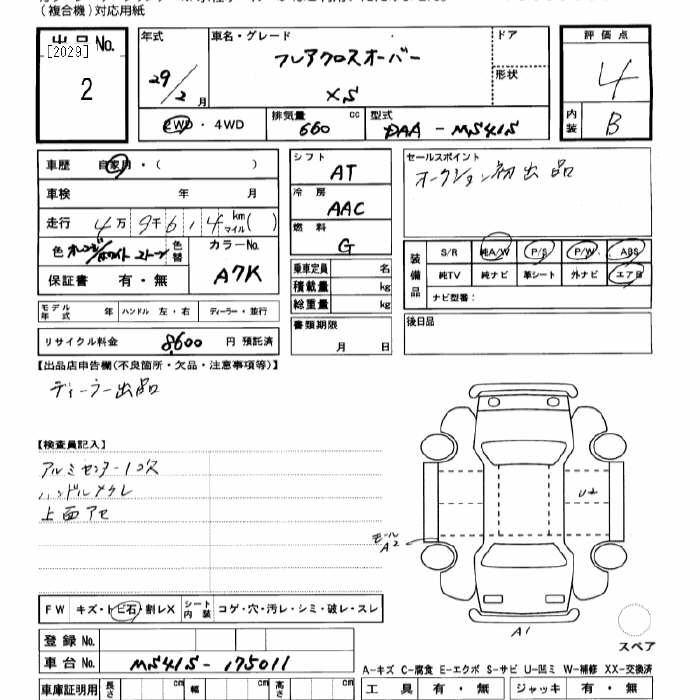 (複合機)対応用紙
出品No.
[2029]
2
年式
29/2月
車名・グレード
フレアクロスオーバー
XS
ドア
形状
評価点
4
内装
B
2WD・4WD
排気量
660
cc
型式
DAA-MS41S
車歴
自家用・(
)
車検
年
月
走行
4万9千6,4
km
マイル
(
)
色
オレンジ/ホワイト 2トーン
色替
カラーNo.
A7K
保証書 有・無
シフト
AT
冷房
AAC
燃料
G
乗車定員
名
積載量
kg
総重量
kg
セールスポイント
オークション初出品
装備品
S/R 純A/W P/S P/W. ABS
純TV 純ナビ 革シート 外ナビ エアB
ナビ型番:
モデル年式
年
ハンドル 左・右
ディーラー・並行
リサイクル料金 8,600 円 預託済
書類期限
月 日
後日品
【出品店申告欄(不良箇所・欠品・注意事項等)】
ディーラー出品
【検査員記入】
アルミセンター1コ欠
ハンドルメクレ
上面アセ
U2
モール
A2
A1
スペア
FW キズ・トビ石・割レX
シート内装
コゲ・穴・汚レ・シミ・破レ・スレ
登録No.
車台No.
MS41S-175011
A-キズ C-腐食 E-エクボ S-サビ U-凹ミ W-補修 XX-交換済
車庫証明用
長さ
cm
幅
cm
高さ
cm
工具 有・無
ジャッキ 有・無